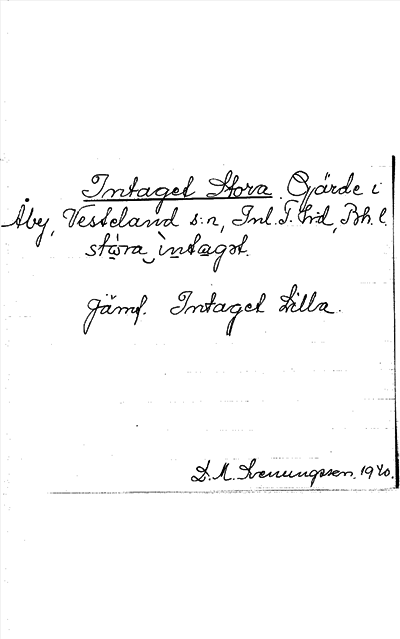 Intaget Stora. Gärde i
Åby, Vesteland s:n, Inl. T. hrd, Boh. l.
stọ̀ra ìntagət.
Jämf. Intaget Lilla.
D. M. Svenungsson. 1940.